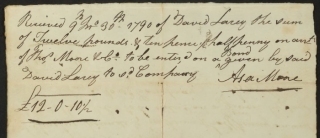 Received 9th Mo 30th 1790 of David Lacey the sum
of Twelve pounds & ten pence halfpenny on acct
of Thos Moore & Co. to be enter'd on a Bond given by said
David Lacey to sd Company Asa Moore
£12-0-10½